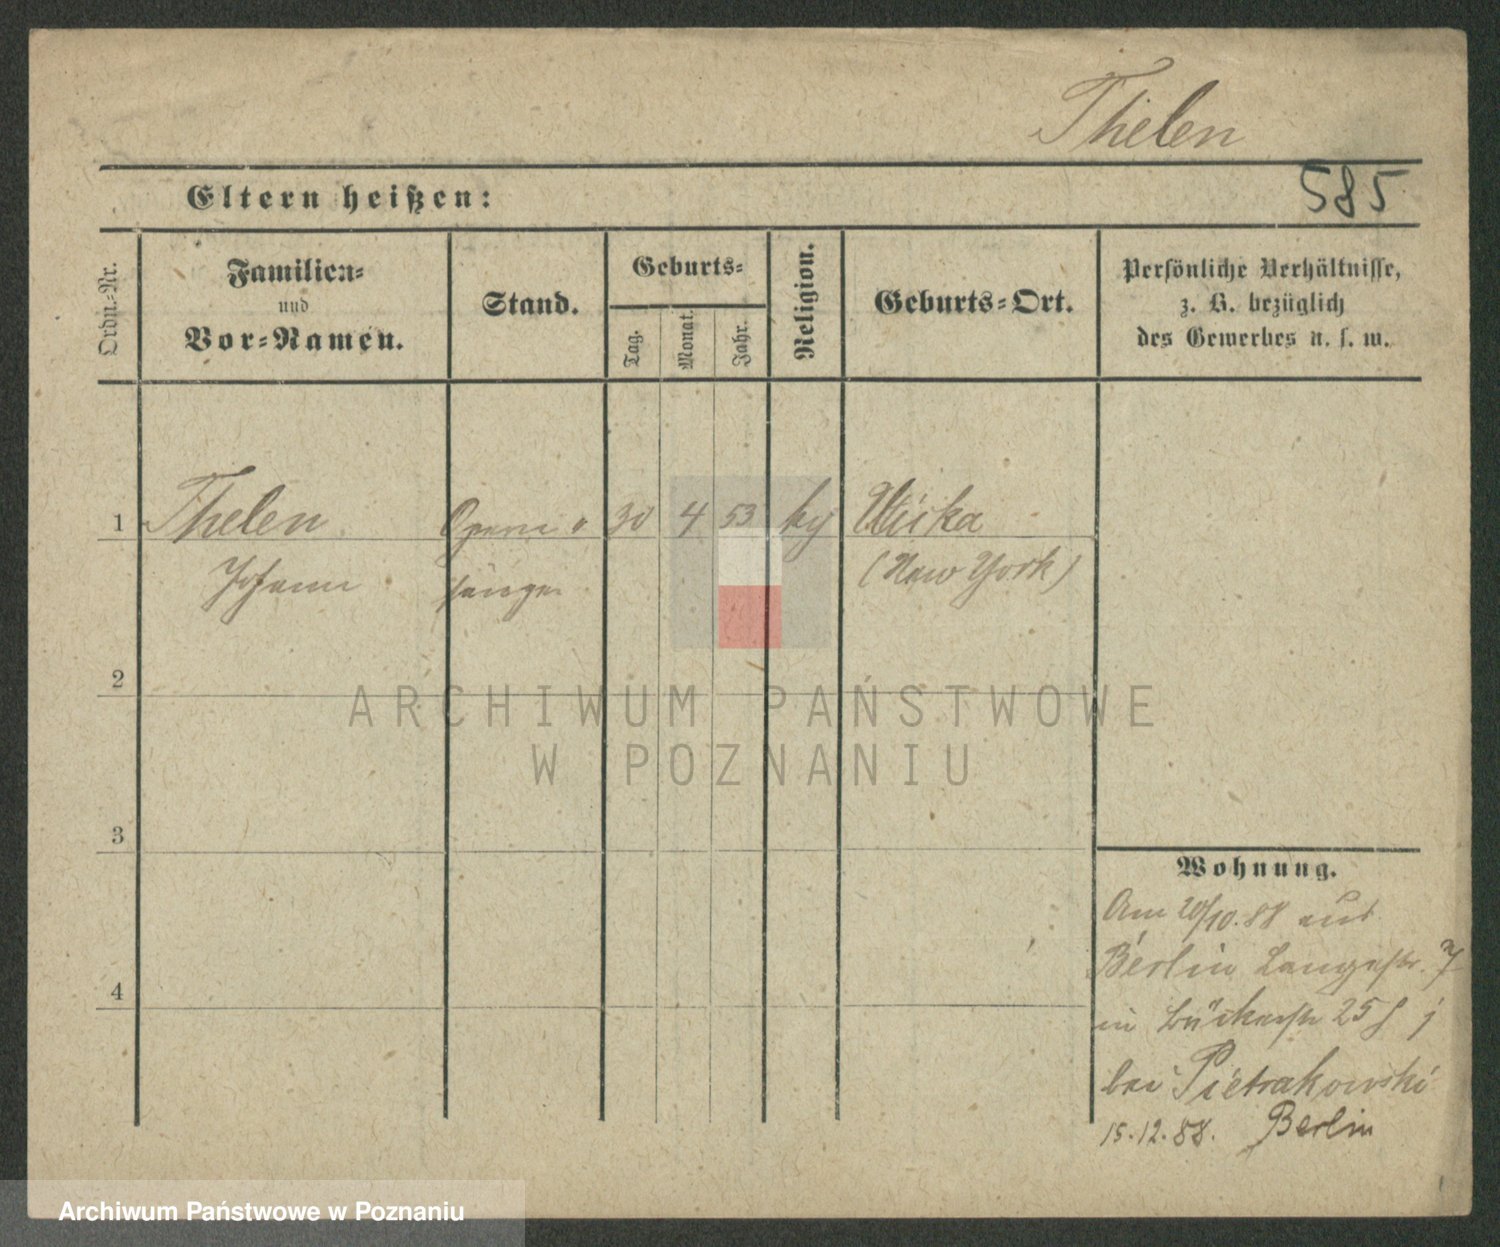 Thelen
585
Eltern heißen:
Ordn.-Nr.
Familien-
und
Vor-Namen.
Stand.
Geburts-
Tag.
Monat.
Jahr.
Religion.
Geburts-Ort.
Persönliche Verhältnisse,
z. B. bezüglich
des Gewerbes u. s. w.
1 Thelen Opern 30 4 53
Johann sänger (New York)
2
3
4
Wohnung.
Am 20/10.88 aus
Berlin Langestr. 7
in 25
bei Pietrakowski
15.12.88. Berlin
ARCHIWUM PAŃSTWOWE
W POZNANIU
Archiwum Państwowe w Poznaniu